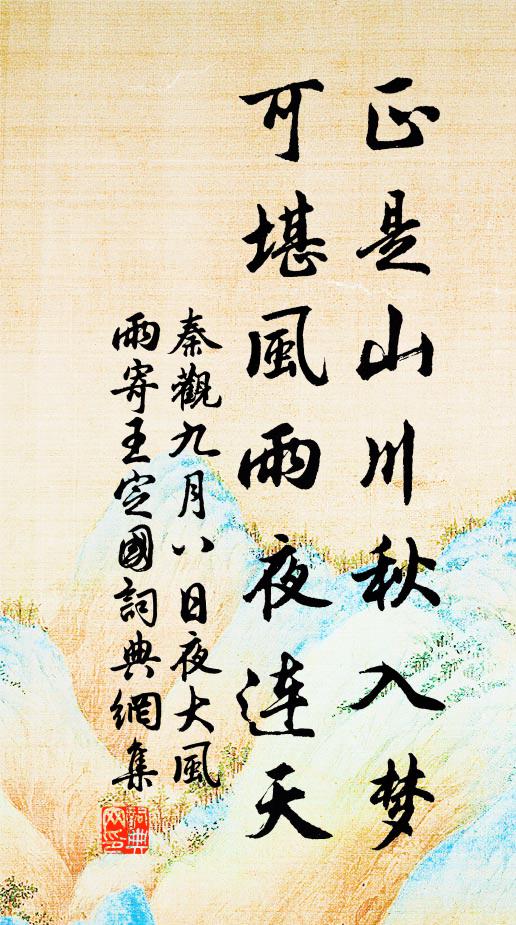 正是山川秋入梦
可堪風雨夜連天
秦觀九月八日夜大風
雨寄王定國詞典網集
詞典
网印